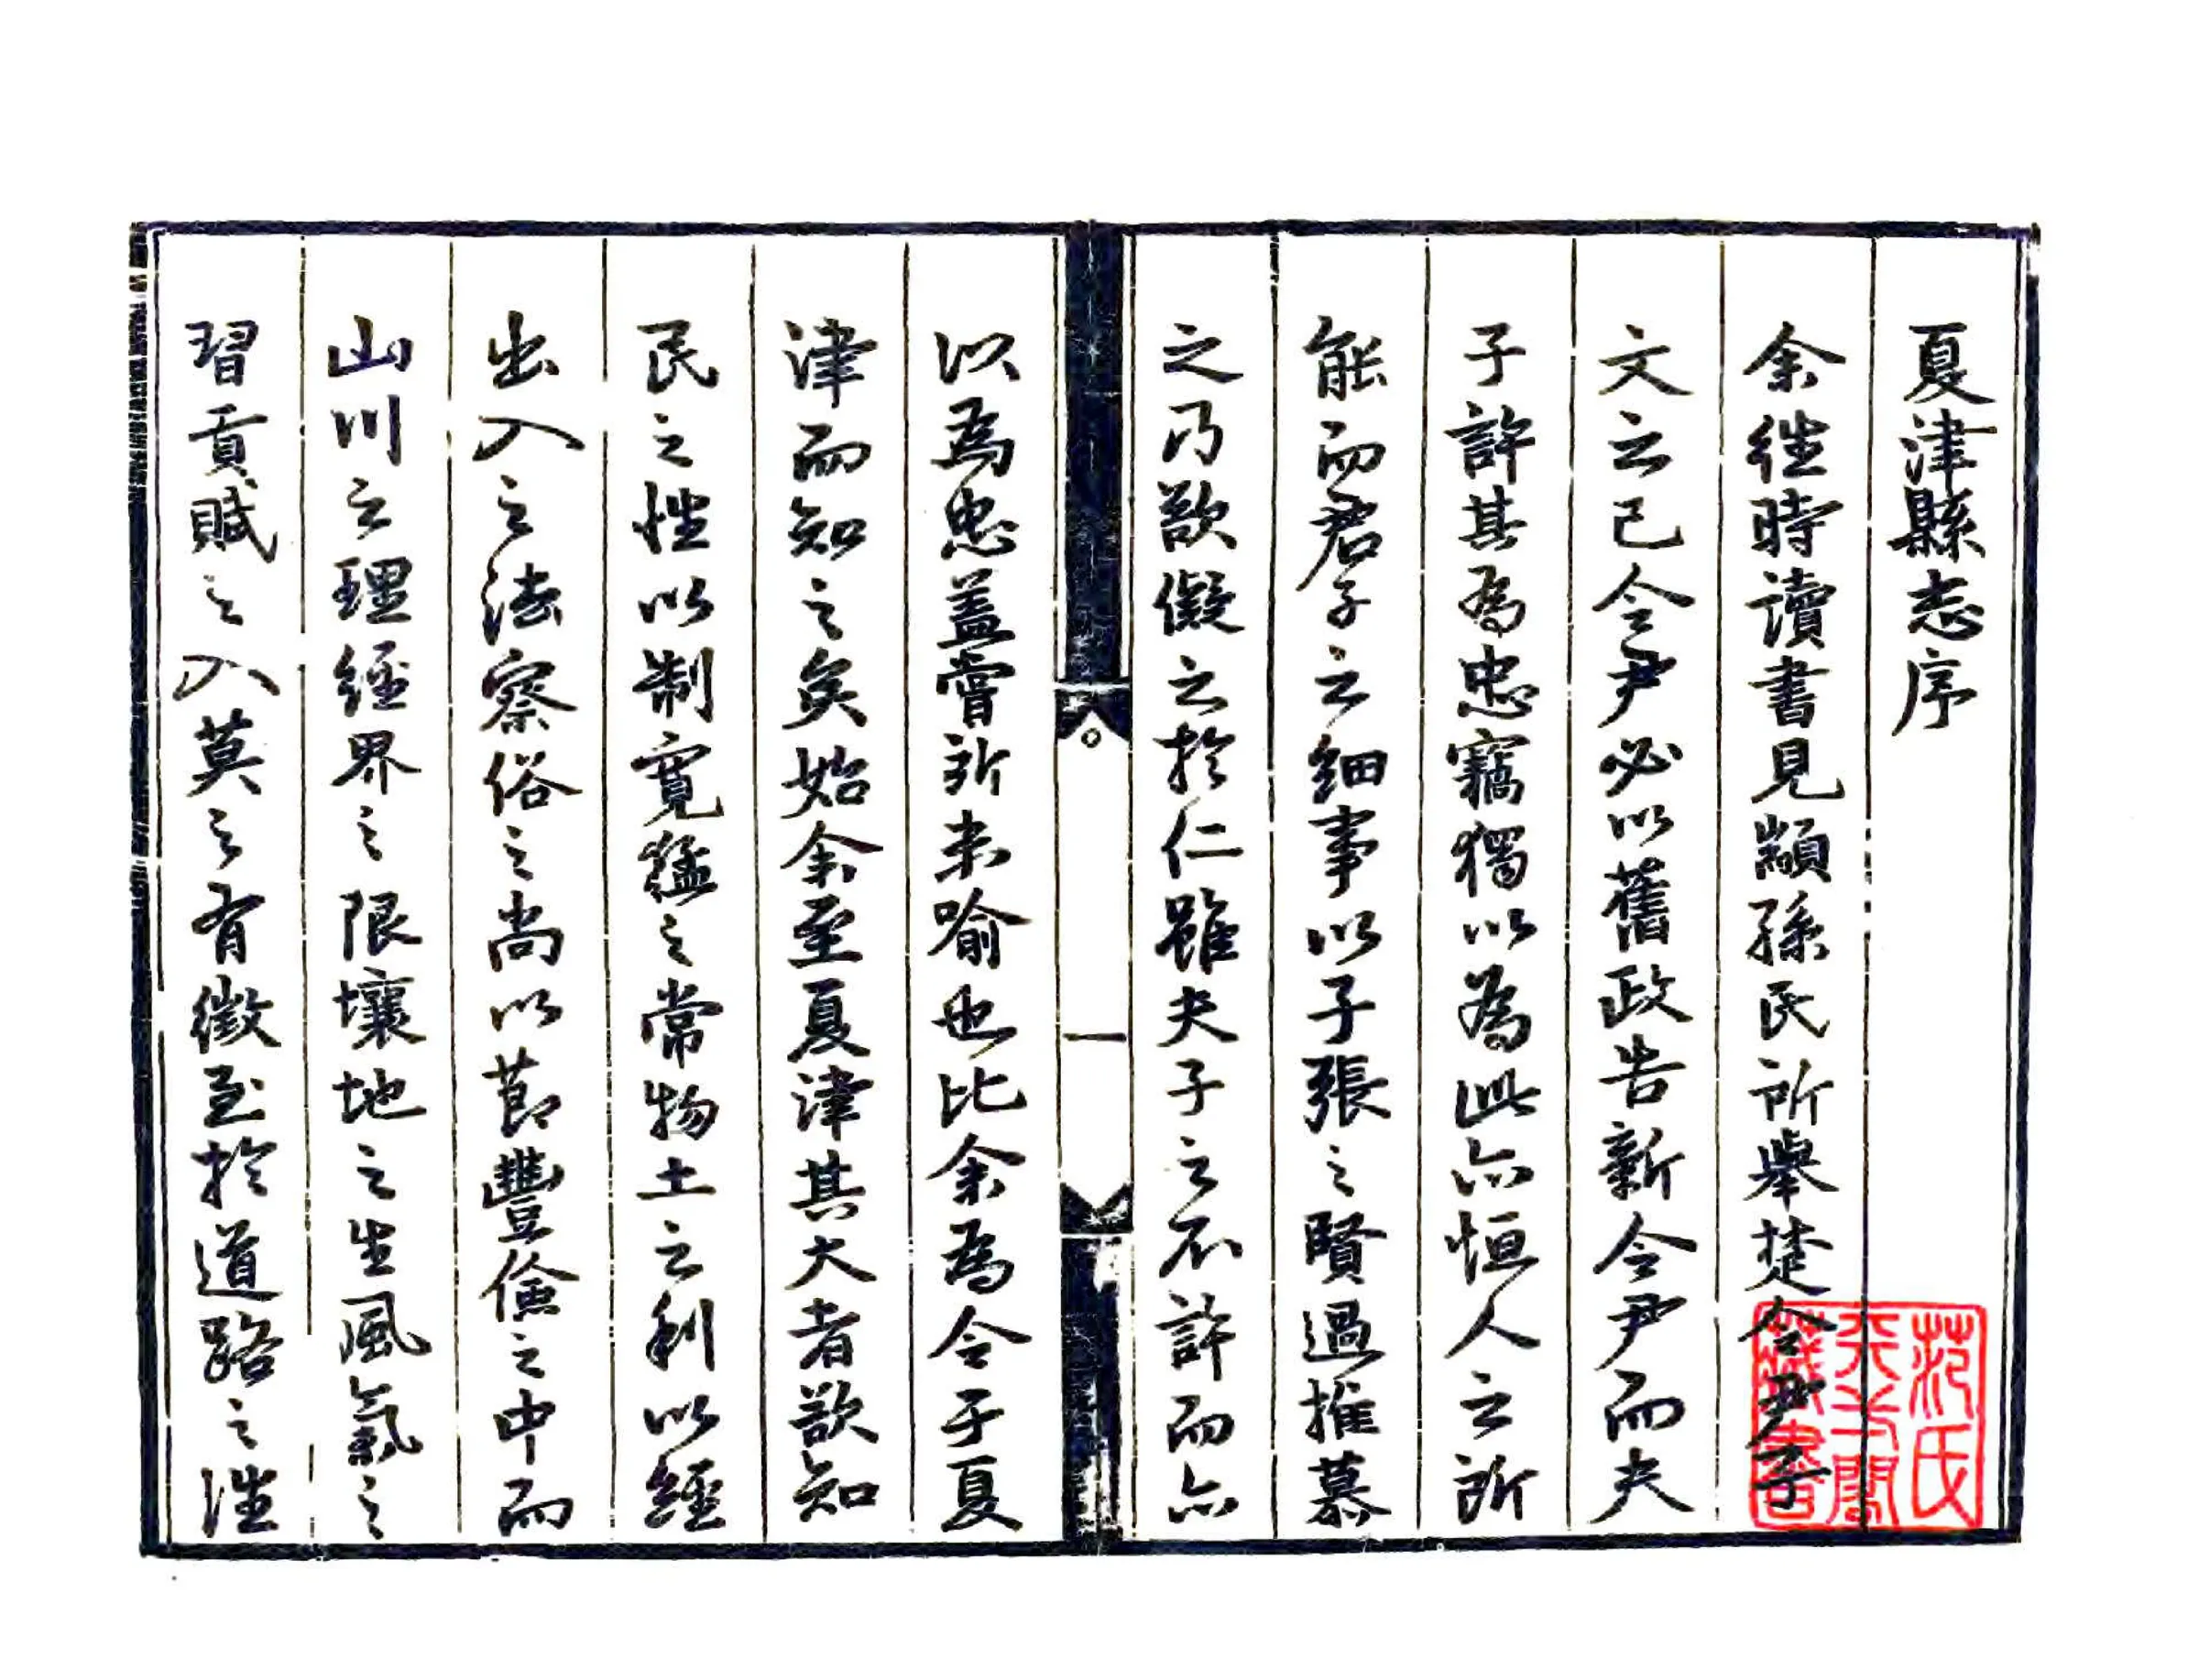 夏津縣志序
余徃時讀書見顓孫氏所舉楚令尹子
文之已令尹必以舊政告新令尹而夫
子許其為忠竊獨以為此亦恒人之所
能而君子之細事以子張之賢過推慕
之乃欲儗之於仁雖夫子之不許而亦
以為忠盖嘗所未喻也比余為令于夏
津而知之矣始余至夏津其大者欲知
民之性以制寛猛之常物土之利以經
出入之法察俗之尚以莭豐儉之中而
山川之理經界之限壤地之生風氣之
習貢賦之入莫之有徵至於道路之徃
一
范氏
天一閣
藏書